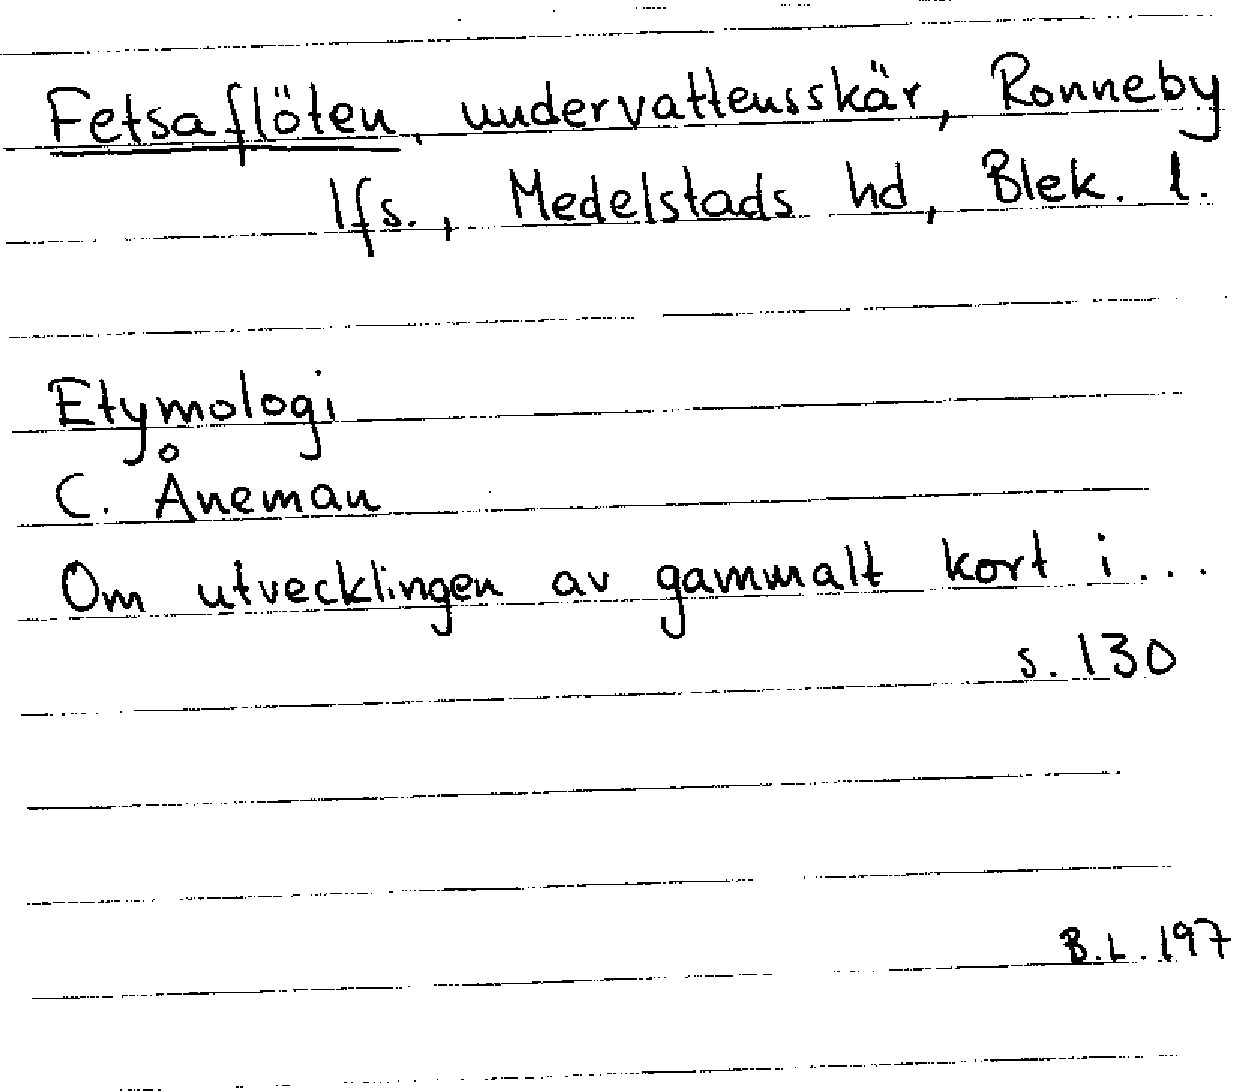 Fetsaflöten, undervattensskär, Ronneby
lfs., Medelstads hd, Blek. l.
Etymologi
C. Åneman
Om utvecklingen av gammalt kort i...
s. 130
B.L. 197